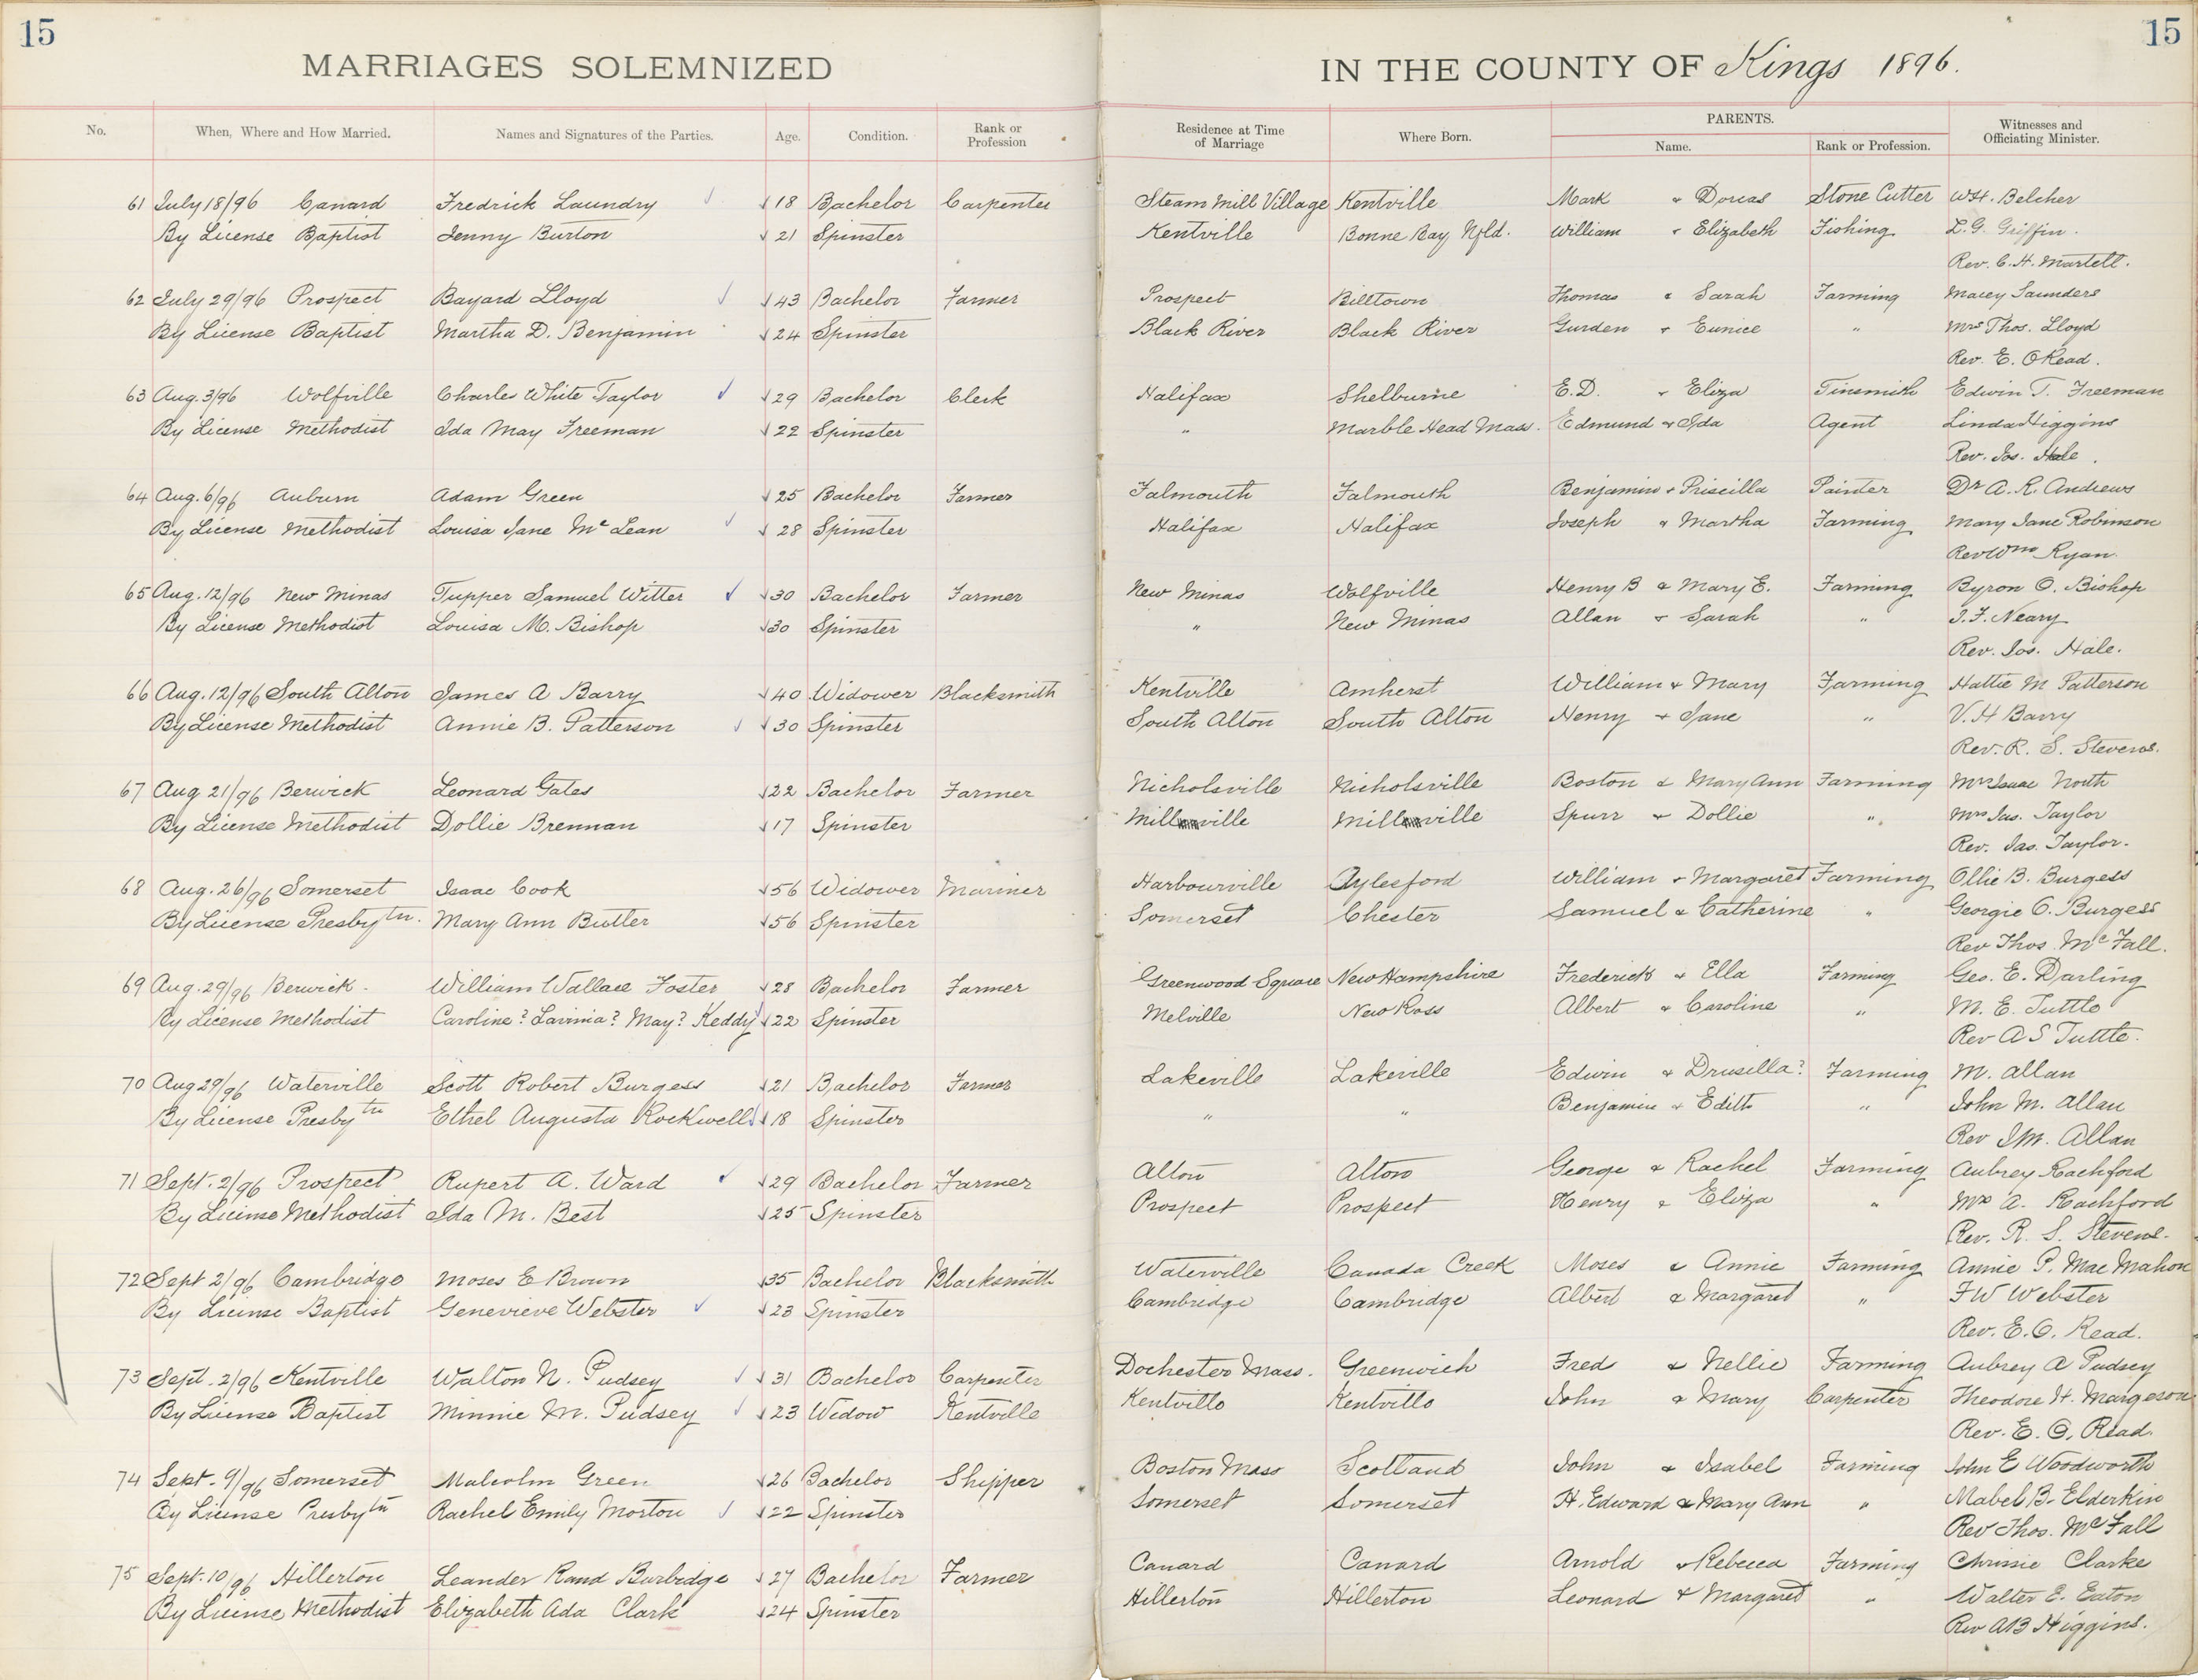 15 15
MARRIAGES SOLEMNIZED IN THE COUNTY OF Kings 1896.
No. When, Where and How Married. Names and Signatures of the Parties. Age. Condition. Rank or Profession Residence at Time of Marriage Where Born. PARENTS. Name. Rank or Profession. Witnesses and Officiating Minister.
61 July 18/96 Canard Fredrick Laundry 18 Bachelor Carpenter Steam Mill Village Kentville Mark & Dorcas Stone Cutter W.H. Belcher
By License Baptist Jenny Burton 21 Spinster Kentville Bonne Bay Nfld. William & Elizabeth Fishing L.G. Griffin.
Rev. C.H. Martell.
62 July 29/96 Prospect Bayard Lloyd 43 Bachelor Farmer Prospect Billtown Thomas & Sarah Farming Macey Saunders
By License Baptist Martha D. Benjamin 24 Spinster Black River Black River Gurden & Eunice " Mrs Thos. Lloyd
Rev. E. O Read.
63 Aug. 3/96 Wolfville Charles White Taylor 29 Bachelor Clerk Halifax Shelburne E.D. & Eliza Tinsmith Edwin T. Freeman
By License Methodist Ida May Freeman 22 Spinster " Marble Head Mass. Edmund & Ida Agent Linda Higgins
Rev. Jos. Hale.
64 Aug. 6/96 Auburn Adam Green 25 Bachelor Farmer Falmouth Falmouth Benjamin & Priscilla Painter Dr A. R. Andrews
By License Methodist Louisa Jane McLean 28 Spinster Halifax Halifax Joseph & Martha Farming Mary Jane Robinson
Rev Wm Ryan.
65 Aug. 12/96 New Minas Tupper Samuel Witter 30 Bachelor Farmer New Minas Wolfville Henry B & Mary E. Farming Byron O. Bishop
By License Methodist Louisa M. Bishop 30 Spinster " New Minas Allan & Sarah " J.F. Neary
Rev. Jos. Hale.
66 Aug. 12/96 South Alton James A Barry 40 Widower Blacksmith Kentville Amherst William & Mary Farming Hattie M Patterson
By License Methodist Annie B. Patterson 30 Spinster South Alton South Alton Henry & Jane " V.H Barry
Rev. R. S. Stevens.
67 Aug 21/96 Berwick Leonard Gates 22 Bachelor Farmer Nicholsville Nicholsville Boston & Mary Ann Farming Mrs Isaac North
By License Methodist Dollie Brennan 17 Spinster Millville Millville Spurr & Dollie " Mrs Jas. Taylor
Rev. Jas. Taylor.
68 Aug. 26/96 Somerset Isaac Cook 56 Widower Mariner Harbourville Aylesford William & Margaret Farming Ollie B. Burgess
By License Presbytn. Mary Ann Butler 56 Spinster Somerset Chester Samuel & Catherine " Georgie O. Burgess
Rev Thos. McFall.
69 Aug. 29/96 Berwick. William Wallace Foster 28 Bachelor Farmer Greenwood Square New Hampshire Frederick & Ella Farming Geo. E. Darling
By License Methodist Caroline? Lavinia? May? Keddy 22 Spinster Melville New Ross Albert & Caroline " M. E. Tuttle
Rev A S Tuttle.
70 Aug 29/96 Waterville Scott Robert Burgess 21 Bachelor Farmer Lakeville Lakeville Edwin & Drusilla? Farming M. Allan
By License Presbytn Ethel Augusta Rockwell 18 Spinster " " Benjamin & Edith " John M. Allan
Rev J M. Allan
71 Sept. 2/96 Prospect Rupert A. Ward 29 Bachelor Farmer Alton Alton George & Rachel Farming Aubrey Rachford
By License Methodist Ida M. Best 25 Spinster Prospect Prospect Henry & Eliza " Mrs A. Rachford
Rev. R. S. Stevens.
72 Sept 2/96 Cambridge Moses E Brown 35 Bachelor Blacksmith Waterville Canada Creek Moses & Annie Farming Annie P. MacMahon
By License Baptist Genevieve Webster 23 Spinster Cambridge Cambridge Albert & Margaret " F W Webster
Rev. E.O. Read.
73 Sept. 2/96 Kentville Walton N. Pudsey 31 Bachelor Carpenter Dochester Mass. Greenwich Fred & Nellie Farming Aubrey A Pudsey
By License Baptist Minnie M. Pudsey 23 Widow Kentville Kentville Kentville John & Mary Carpenter Theodore H. Margeson
Rev. E. O. Read.
74 Sept. 9/96 Somerset Malcolm Green 26 Bachelor Shipper Boston Mass Scotland John & Isabel Farming John E Woodworth
By License Presbytn Rachel Emily Morton 22 Spinster Somerset Somerset H. Edward & Mary Ann " Mabel B. Elderkin
Rev Thos. McFall
75 Sept. 10/96 Hillerton Leander Rand Burbidge 27 Bachelor Farmer Canard Canard Arnold & Rebecca Farming Chrissie Clarke
By License Methodist Elizabeth Ada Clark 24 Spinster Hillerton Hillerton Leonard & Margaret " Walter E. Eaton
Rev A B Higgins.